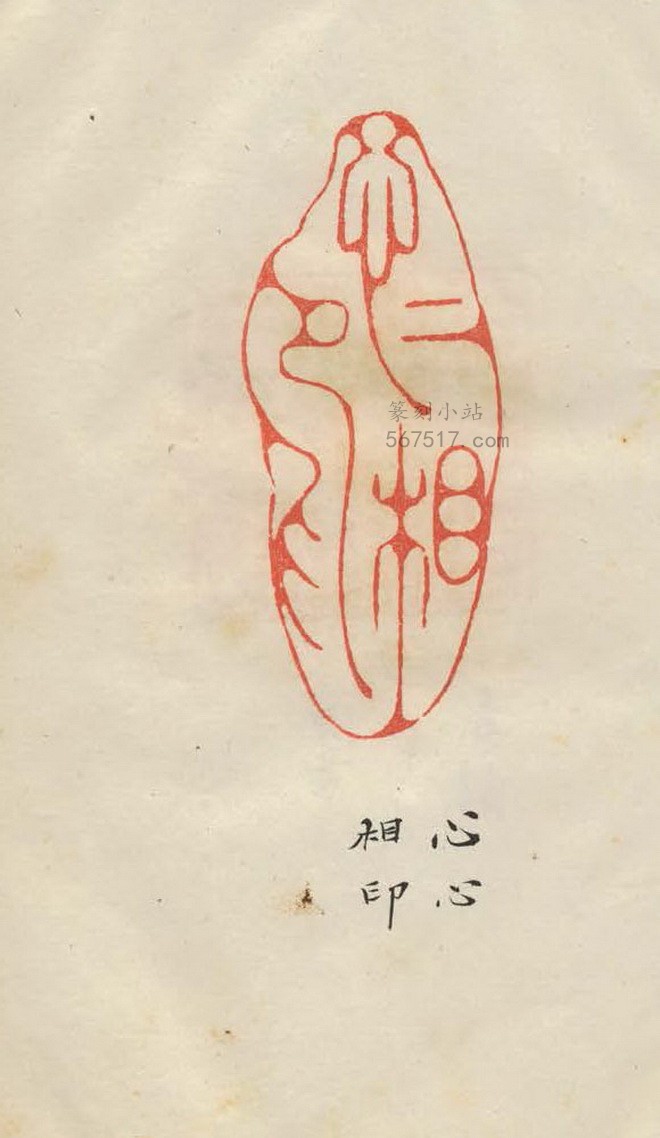 心〻相印
篆刻小站
567517.com
心心
相印